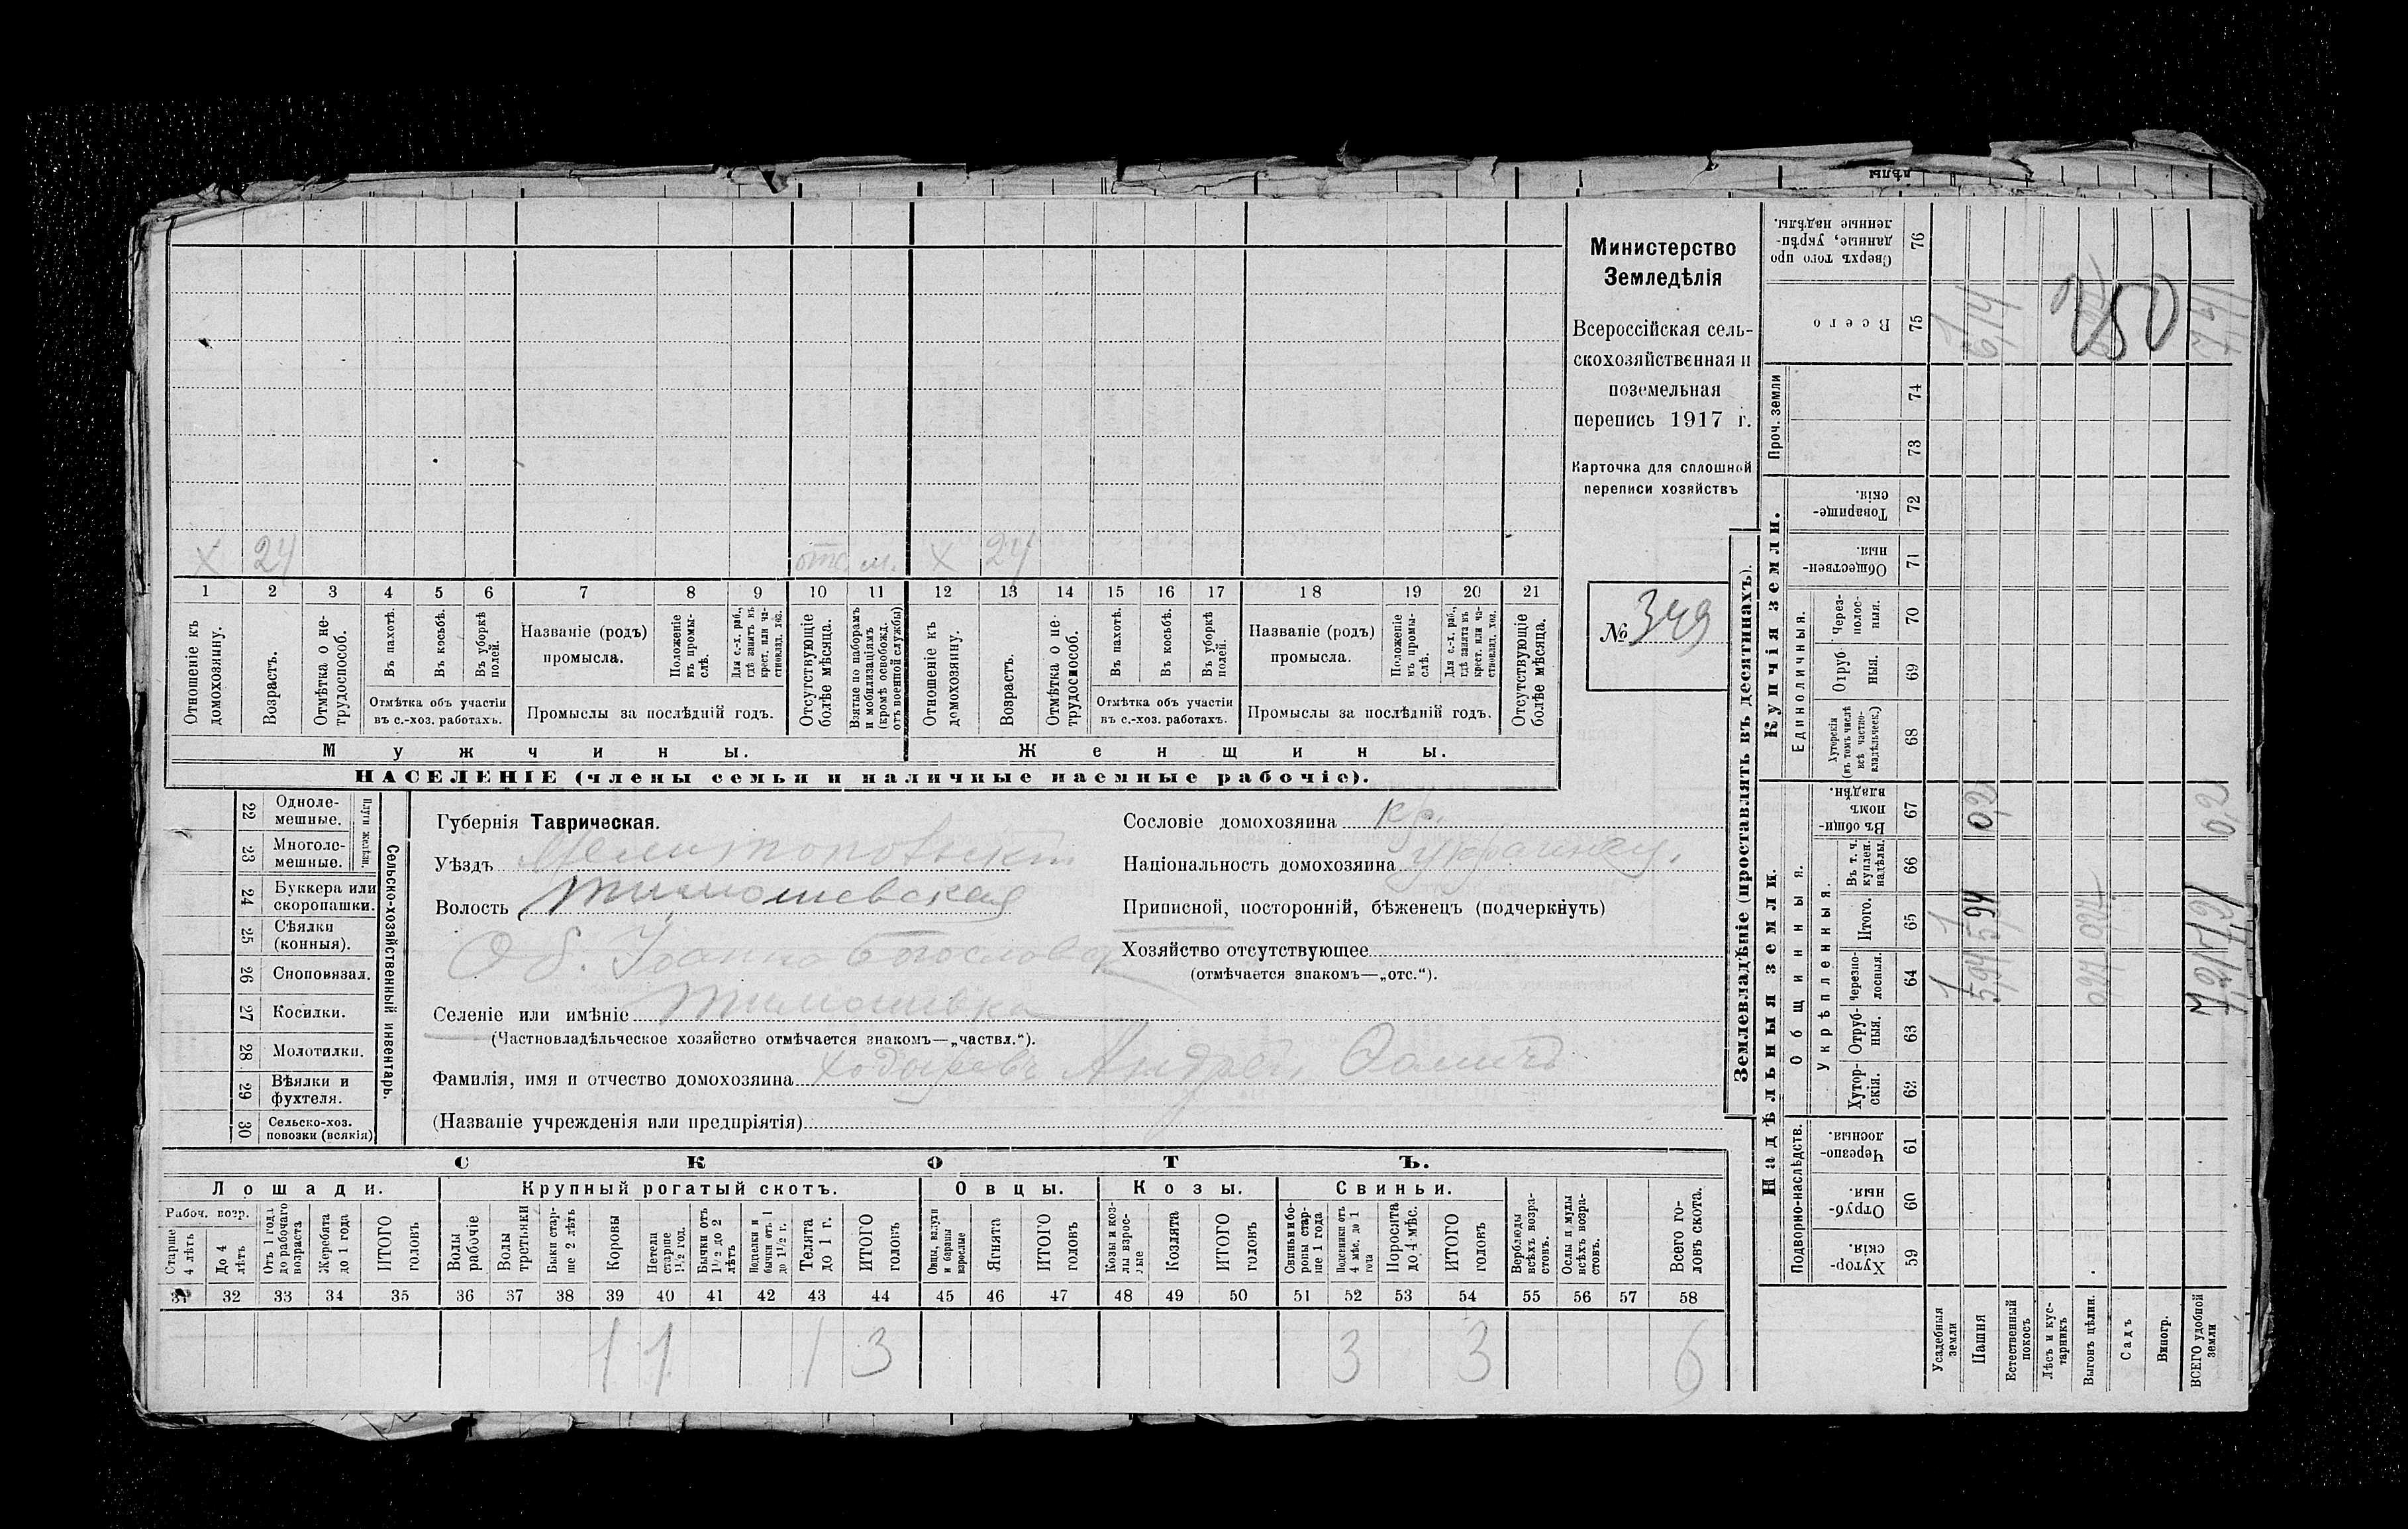 Министерство
Земледѣлія
Всероссійская сель-
скохозяйственная и
поземельная
перепись 1917 г.
Карточка для сплошной
переписи хозяйствъ
№ 349
х 24 отс. м. х 24
1 2 3 4 5 6 7 8 9 10 11 12 13 14 15 16 17 18 19 20 21
Отношеніе къ домохозяину.
Возрастъ.
Отмѣтка о не-трудоспособ.
Въ пахотѣ.
Въ косьбѣ.
Въ уборкѣ полей.
Отмѣтка объ участіи
въ с.-хоз. работахъ.
Названіе (родъ)
промысла.
Положеніе въ промы-слѣ.
Для с.-х. раб., гдѣ занятъ въ крест. или ча-стновлад. хоз.
Промыслы за послѣдній годъ.
Отсутствующіе болѣе мѣсяца.
Взятые по наборамъ и мобилизаціямъ (кромѣ освобожд. отъ военной службы)
Отношеніе къ домохозяину.
Возрастъ.
Отмѣтка о не-трудоспособ.
Въ пахотѣ.
Въ косьбѣ.
Въ уборкѣ полей.
Отмѣтка объ участіи
въ с.-хоз. работахъ.
Названіе (родъ)
промысла.
Положеніе въ промы-слѣ.
Для с.-х. раб., гдѣ занята въ крест. или ча-стновлад. хоз.
Промыслы за послѣдній годъ.
Отсутствующіе болѣе мѣсяца.
Мужчины. Женщины.
НАСЕЛЕНІЕ (члены семьи и наличные наемные рабочіе).
22 Одноле-мешные.
23 Многоле-мешные.
Плуги желѣзн.
24 Буккера или скоропашки.
25 Сѣялки (конныя).
26 Сноповязал.
27 Косилки.
28 Молотилки.
29 Вѣялки и фухтеля.
30 Сельско-хоз. повозки (всякія)
Сельско-хозяйственный инвентарь.
Губернія Таврическая.
Уѣздъ Мелитопольскій
Волость Тимошевская
Об. Іоанна Богослова
Селеніе или имѣніе Тимошивка
(Частновладѣльческое хозяйство отмѣчается знакомъ—„частвл.“).
Фамилія, имя и отчество домохозяина Андрей
(Названіе учрежденія или предпріятія)
Сословіе домохозяина кр.
Національность домохозяина украинец.
Приписной, посторонній, бѣженецъ (подчеркнуть)
Хозяйство отсутствующее
(отмѣчается знакомъ—„отс.“).
СКОТЪ.
Лошади. Крупный рогатый скотъ. Овцы. Козы. Свиньи.
Рабоч. возр.
Старше 4 лѣтъ
До 4 лѣтъ
Отъ 1 года до рабочаго возраста
Жеребята до 1 года
ИТОГО головъ
Волы рабочіе
Волы третьяки
Быки стар-ше 2 лѣтъ
Коровы
Нетели старше 1½ год.
Бычки отъ 1½ до 2 лѣтъ
Подтелки и бычки отъ 1 до 1½ г.
Телята до 1 г.
ИТОГО головъ
Овцы, валухи и бараны взрослые
Ягнята
ИТОГО головъ
Козы и коз-лы взрос-лые
Козлята
ИТОГО головъ
Свиньи и бо-ровы стар-ше 1 года
Подсвинки отъ 4 мѣс. до 1 года
Поросята до 4 мѣс.
ИТОГО головъ
Верблюды всѣхъ возра-стовъ.
Ослы и мулы всѣхъ возра-стовъ.
Всего го-ловъ скота.
31 32 33 34 35 36 37 38 39 40 41 42 43 44 45 46 47 48 49 50 51 52 53 54 55 56 57 58
1 1 1 3 3 3 6
Землевладѣніе (проставлять въ десятинахъ).
Надѣльныя земли.
Купчія земли.
Проч. земли
Подворно-наслѣдств.
Общинныя.
Укрѣпленныя.
Единоличныя.
Хутор-скія. 59
Отруб-ныя. 60
Черезпо-лосныя. 61
Хутор-скія. 62
Отруб-ныя. 63
Черезпо-лосныя. 64
Итого. 65
Въ т. ч. куплен. надѣлы. 66
Въ общи-номъ владѣн. 67
Хуторскія (въ томъ числѣ всѣ частно-владѣльческ.) 68
Отруб-ныя. 69
Через-полос-ныя. 70
Обществен-ныя. 71
Товарище-скія. 72
73
74
Всего 75
Сверхъ того про-данные, укрѣп-ленные надѣлы. 76
Усадебныя земли
Пашня
Естественный покосъ
Лѣсъ и кус-тарникъ
Выгонъ цѣлин.
Садъ
Виногр.
ВСЕГО удобной земли
1 1 1
594 594 02 614
250
02